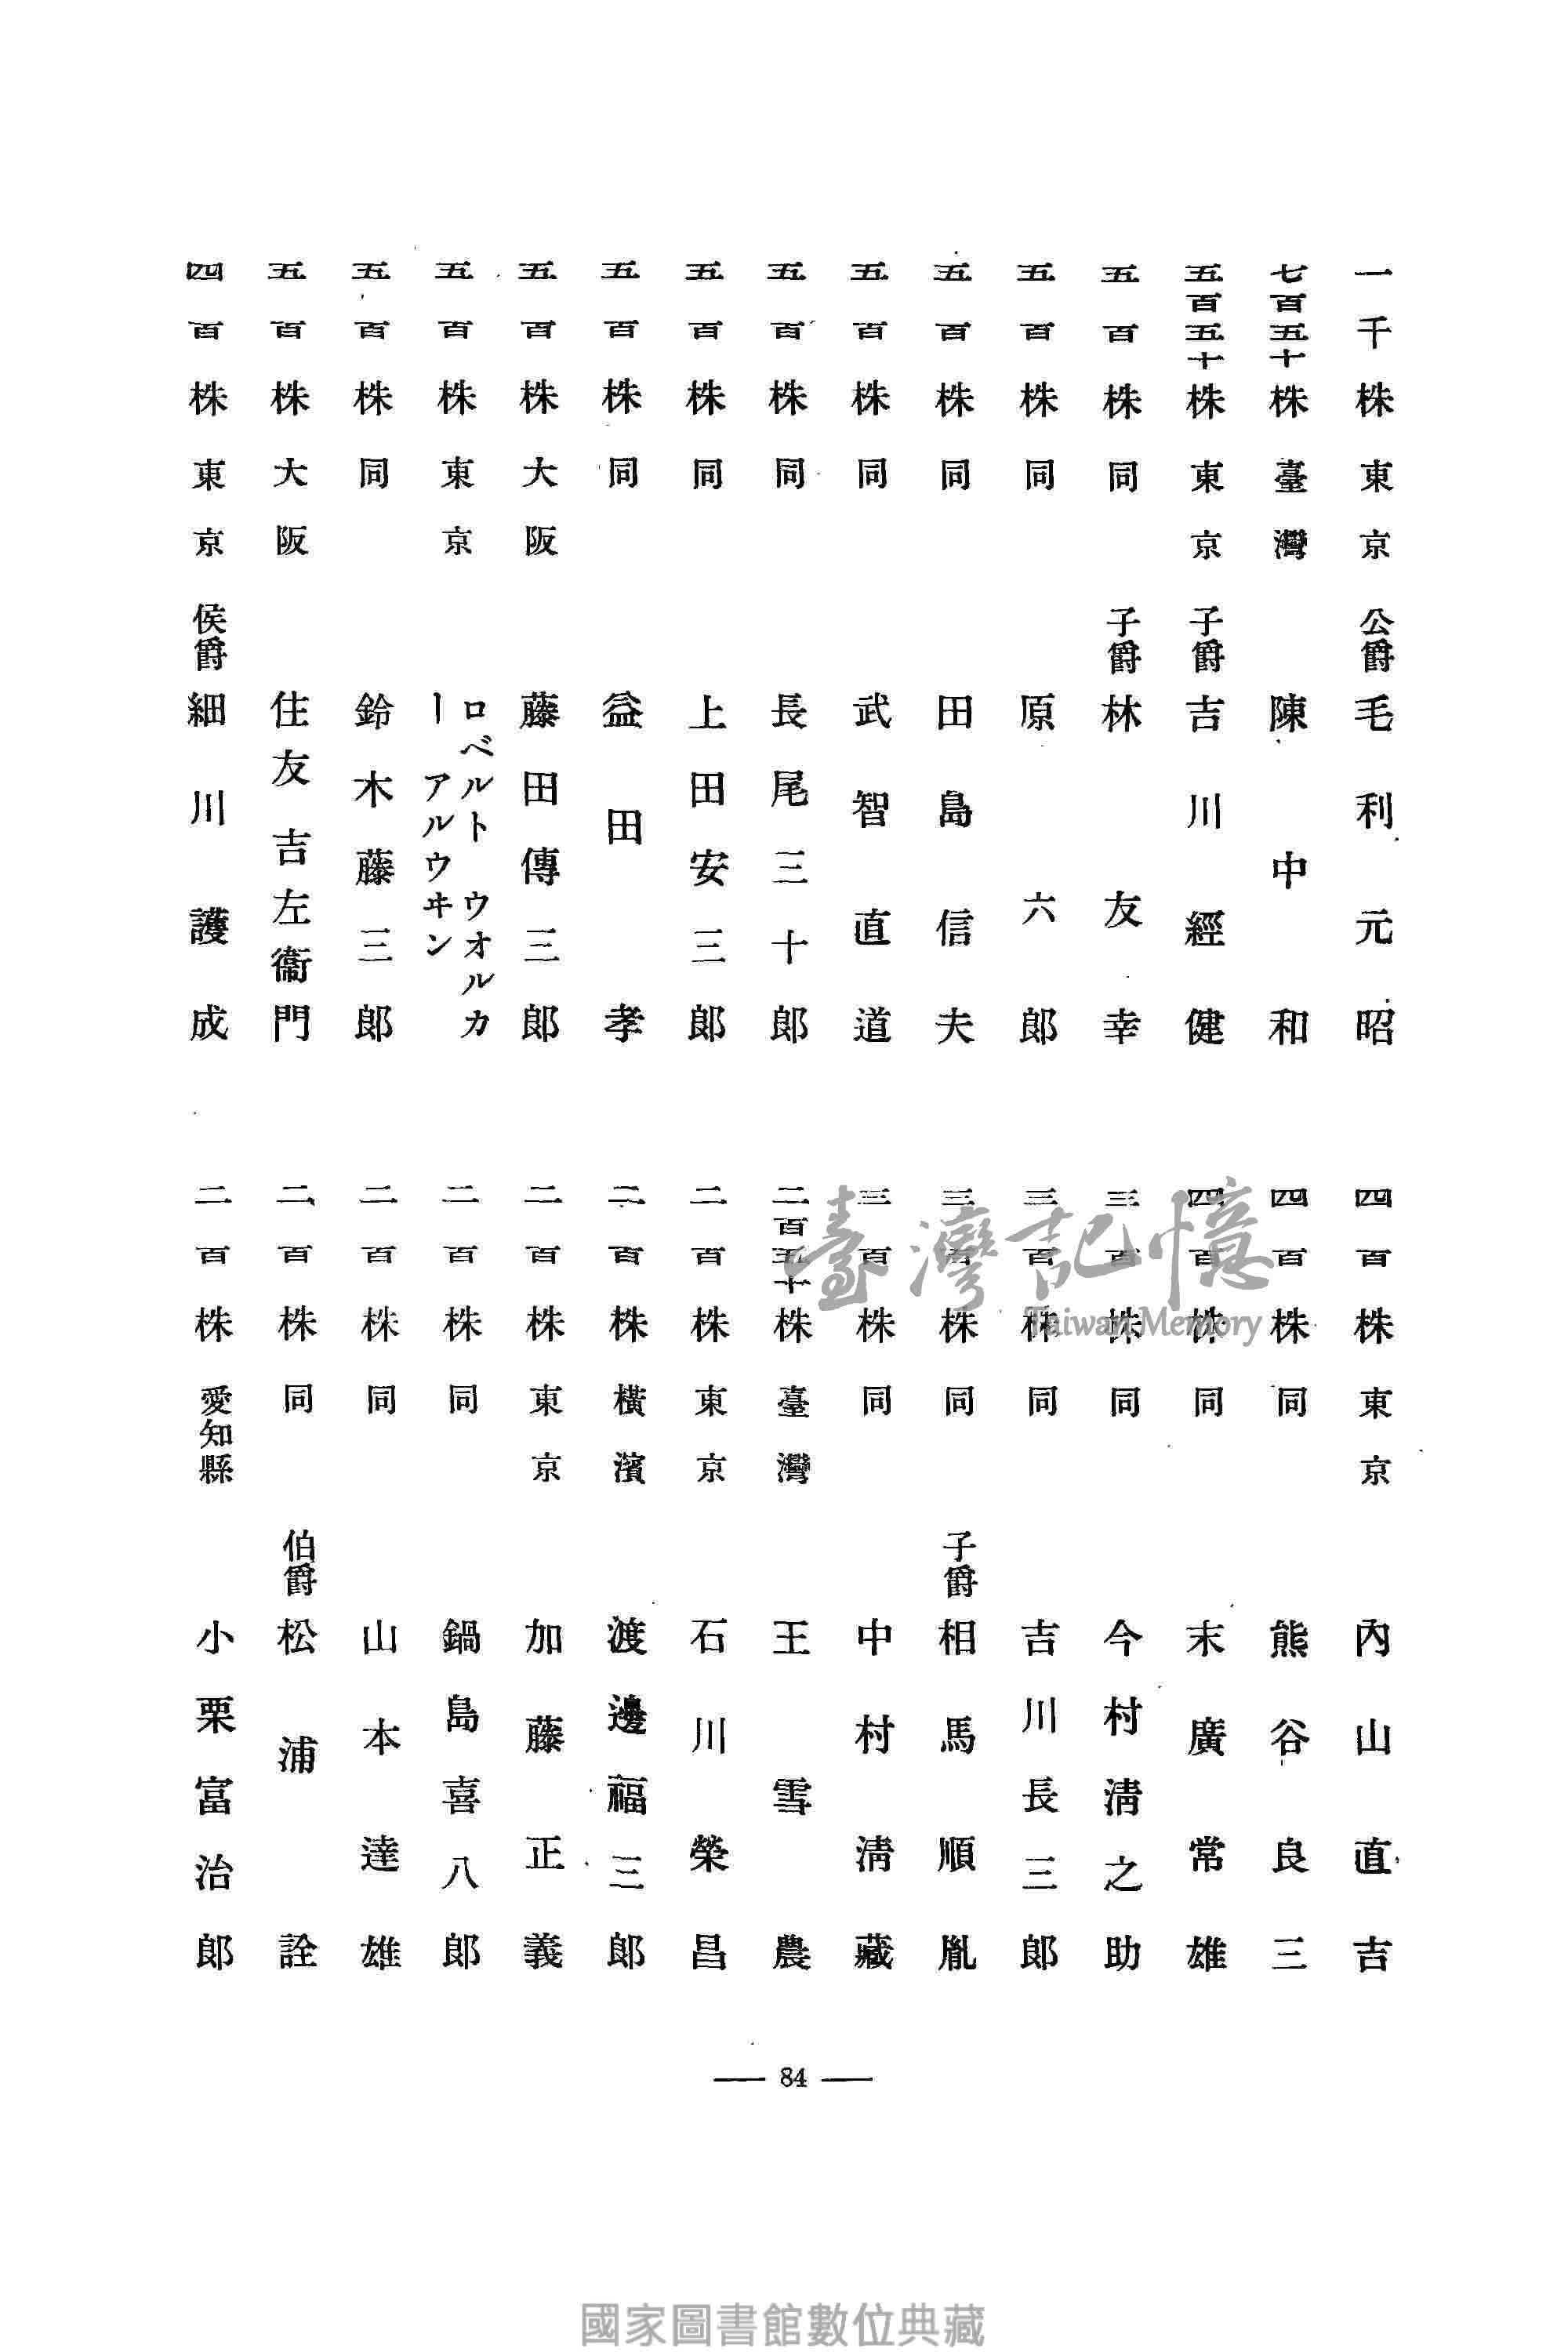 一千株 東京 公爵 毛利元昭
七百五十株 臺灣 陳中和
五百五十株 東京 子爵 吉川經健
五百株 同 子爵 林友幸
五百株 同 原六郎
五百株 同 田島信夫
五百株 同 武智直道
五百株 同 長尾三十郎
五百株 同 上田安三郎
五百株 同 益田孝
五百株 大阪 藤田傳三郎
五百株 東京 ロベルト ウオルカー アルウヰン
五百株 同 鈴木藤三郎
五百株 大阪 住友吉左衞門
四百株 東京 侯爵 細川護成
四百株 東京 內山直吉
四百株 同 熊谷良三
四百株 同 末廣常雄
三百株 同 今村淸之助
三百株 同 吉川長三郎
三百株 同 子爵 相馬順胤
三百株 同 中村淸藏
二百五十株 臺灣 王雪農
二百株 東京 石川榮昌
二百株 橫濱 渡邊福三郎
二百株 東京 加藤正義
二百株 同 鍋島喜八郎
二百株 同 山本達雄
二百株 同 伯爵 松浦詮
二百株 愛知縣 小栗富治郎
臺灣記憶
Taiwan Memory
— 84 —
國家圖書館數位典藏